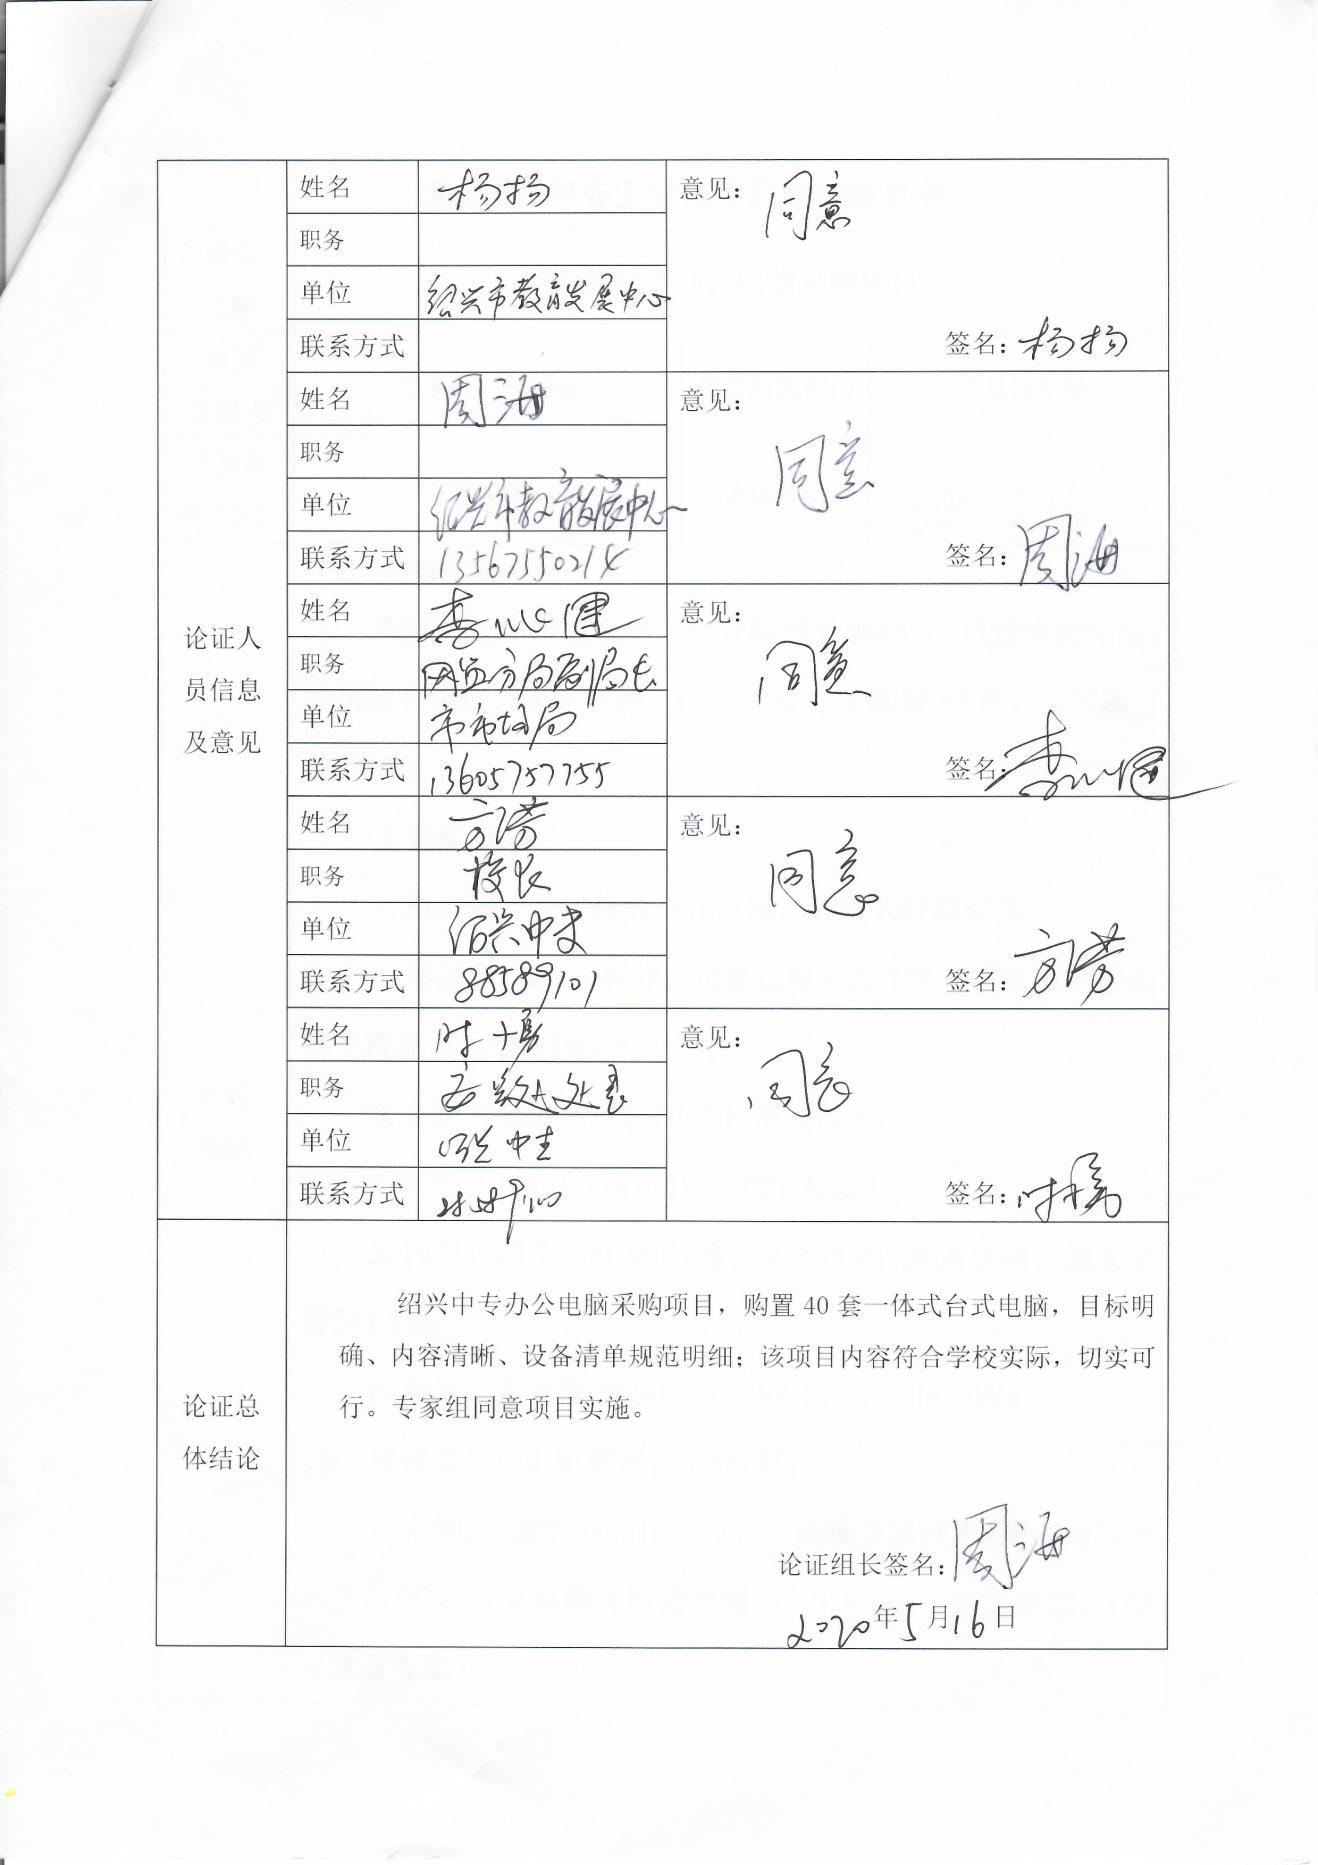 姓名 杨扬 意见：同意
职务
单位 绍兴市教育发展中心
联系方式 签名：杨扬
姓名 周海 意见：
职务 同意
单位 绍兴市教育发展中心
联系方式 13567550214 签名：周海
姓名 李 健 意见：
职务 网监分局副局长 同意
单位 市市场局
联系方式 13605757755 签名：李 健
论证人
员信息
及意见
姓名 方 意见：
职务 校长 同意
单位 绍兴中专
联系方式 88589101 签名：方
姓名 意见：
职务 同意
单位 绍兴中专
联系方式 签名：
论证总
体结论
绍兴中专办公电脑采购项目，购置 40 套一体式台式电脑，目标明
确、内容清晰、设备清单规范明细；该项目内容符合学校实际，切实可
行。专家组同意项目实施。
论证组长签名：周海
2020年5月16日